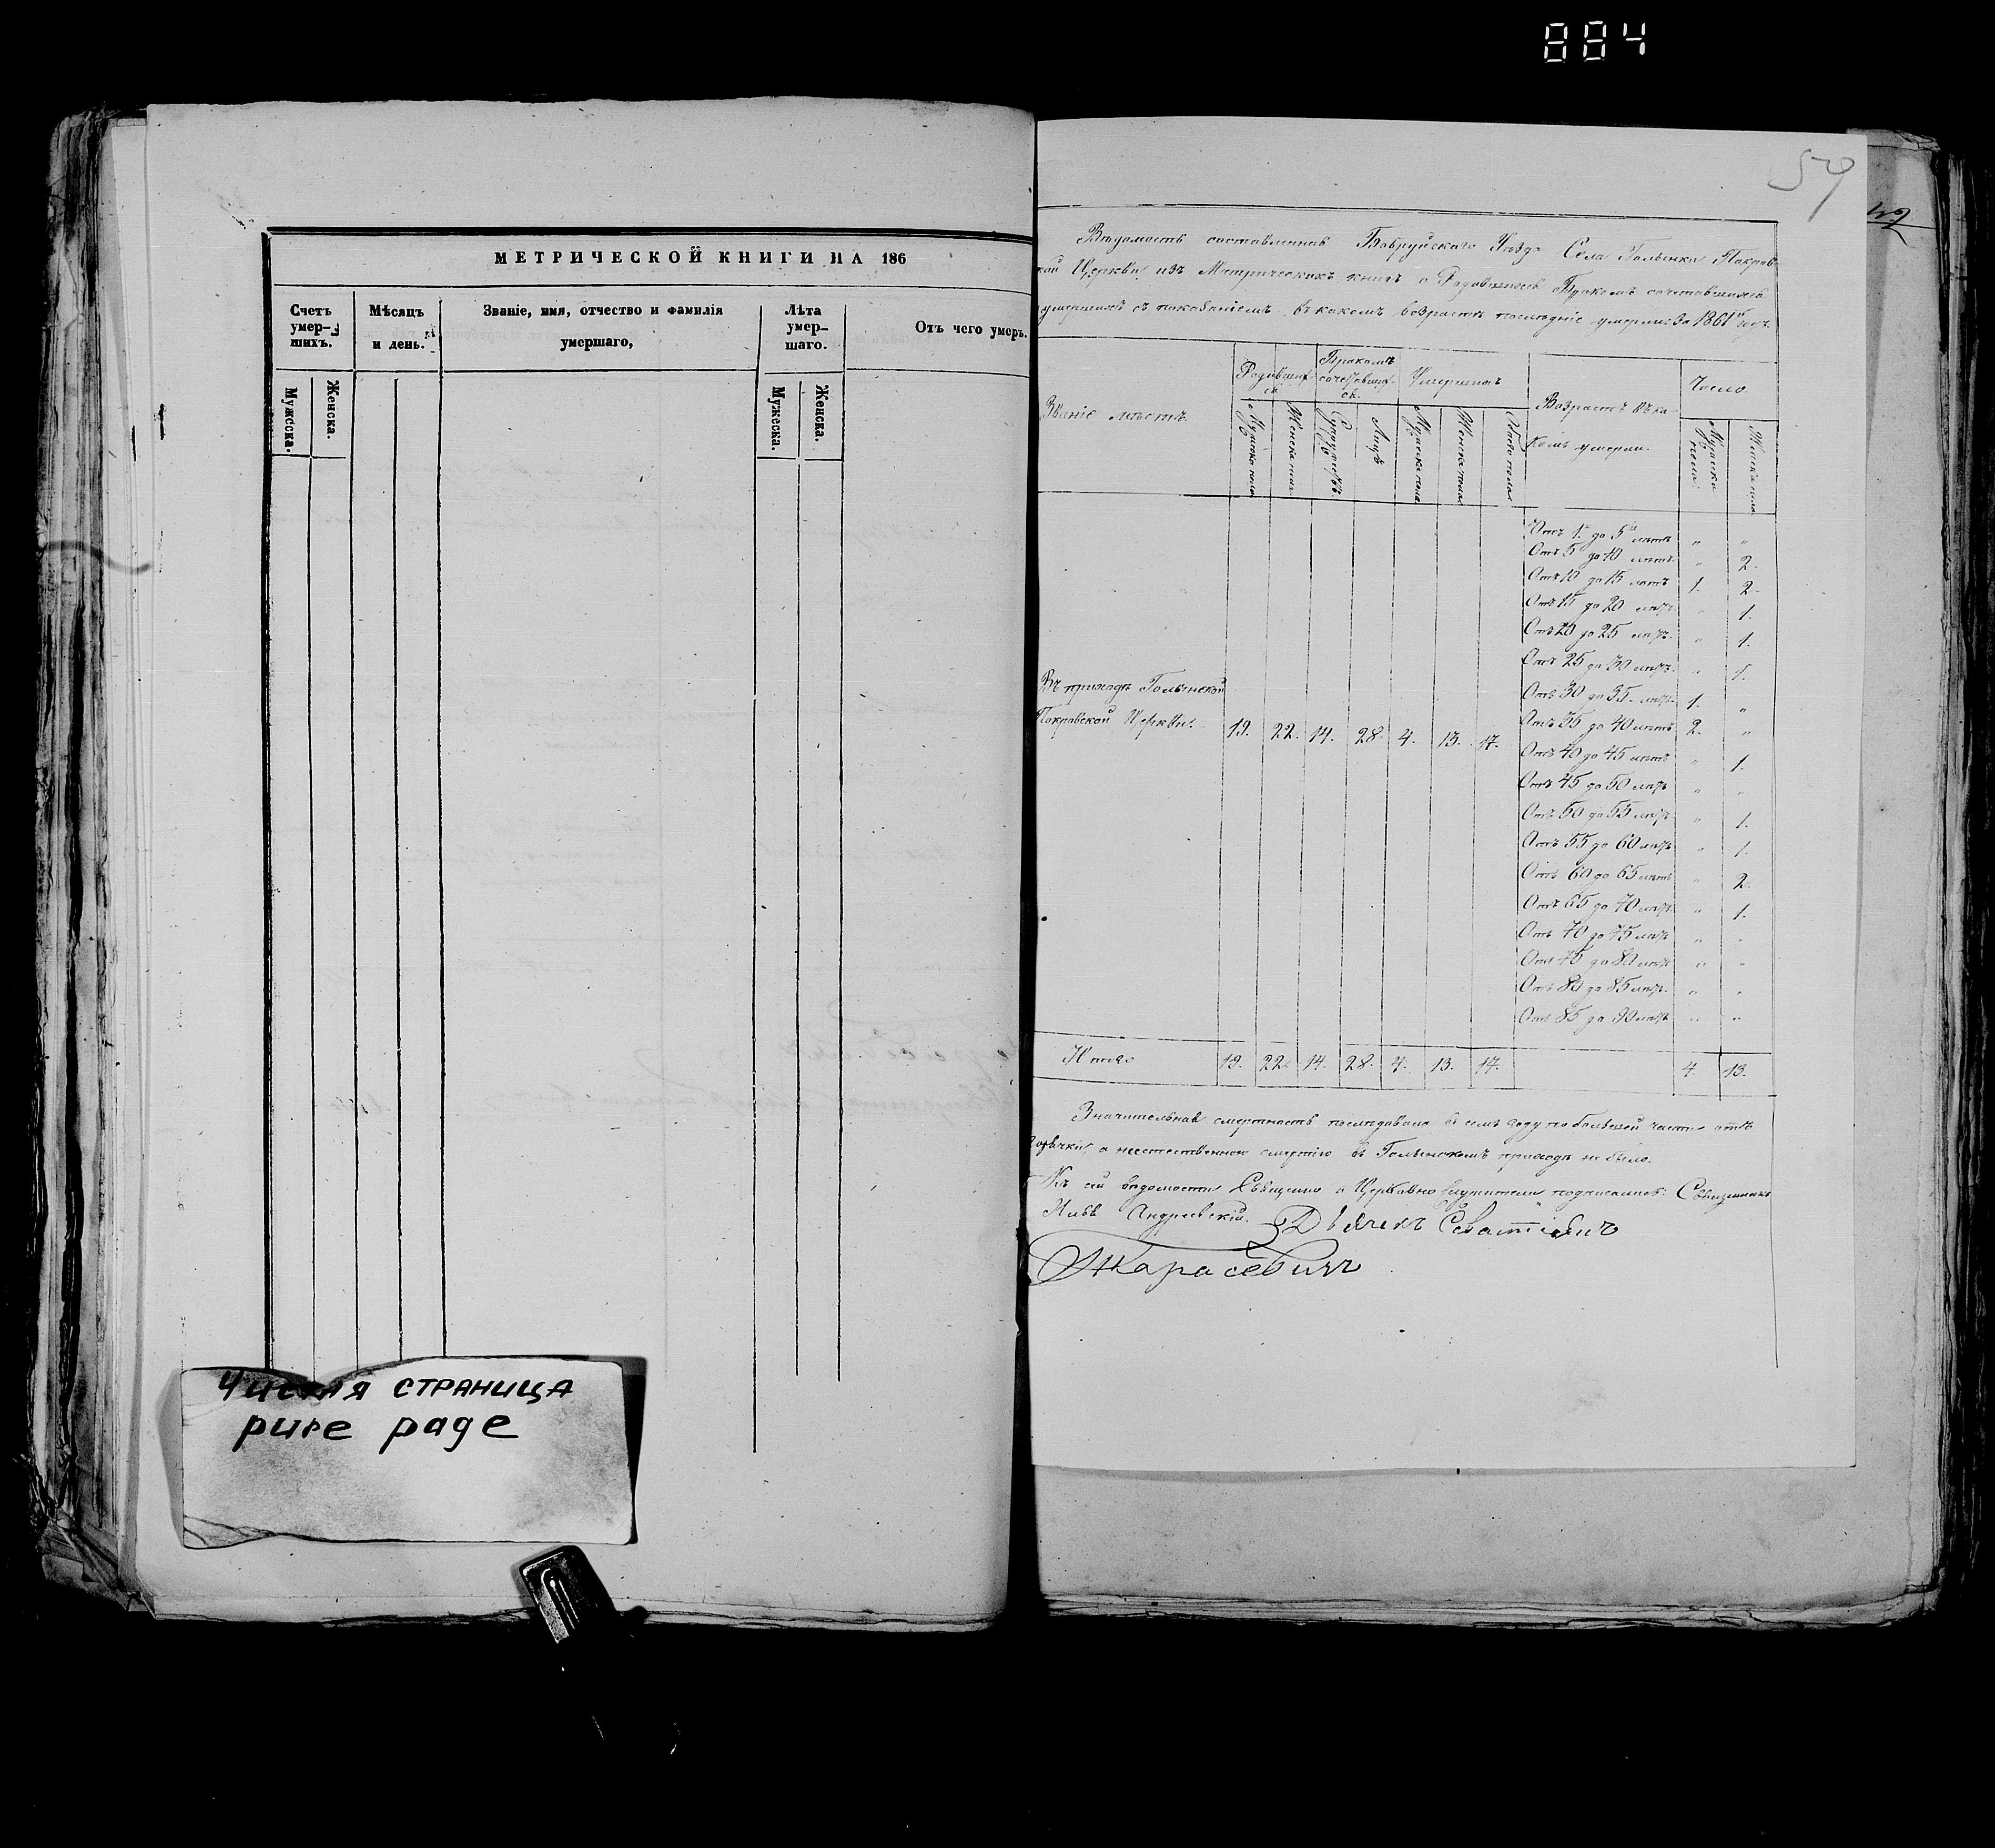 884
МЕТРИЧЕСКОЙ КНИГИ НА 186
Счетъ умер- шихъ.
Мѣсяцъ и день.
Званіе, имя, отчество и фамилія умершаго,
Лѣта умер- шаго.
Отъ чего умеръ.
Мужеска.
Женска.
Мужеска.
Женска.
Чистая страница
pure page
59
Вѣдомость составленная Бобруйскаго Уѣзда Села Голынки Покров-
кой Церкви изъ Метрическихъ книгъ о Родившихся Бракомъ сочетавшихся
умершихъ съ показаніемъ въ какомъ возрастѣ послѣдніе умерли За 1861й годъ.
Званіе мѣстъ.
Родивших-ся.
Бракомъ сочетавших-ся.
Умершихъ
Возрастъ въ ка-
комъ умерли.
Число
Мужеска пола
Женска пола
Супружествъ
Лицъ
Мужеска пола
Женска пола
Обоего пола
Мужеска пола
Женска пола
Отъ 1. до 5й лѣтъ " "
Отъ 5 до 10 лѣтъ " 2.
Отъ 10 до 15 лѣтъ 1. 2.
Отъ 15 до 20 лѣтъ " 1.
Отъ 20 до 25 лѣтъ " 1.
Отъ 25 до 30 лѣтъ " 1.
Отъ 30 до 35 лѣтъ 1. "
Отъ 35 до 40 лѣтъ 2. "
Отъ 40 до 45 лѣтъ " 1.
Отъ 45 до 50 лѣтъ " "
Отъ 50 до 55 лѣтъ " 1.
Отъ 55 до 60 лѣтъ " 1.
Отъ 60 до 65 лѣтъ " 2.
Отъ 65 до 70 лѣтъ " 1.
Отъ 70 до 75 лѣтъ " "
Отъ 75 до 80 лѣтъ " "
Отъ 80 до 85 лѣтъ " "
Отъ 85 до 90 лѣтъ " "
Въ приходѣ Голынской
Покровской Церкви. 19. 22. 14. 28. 4. 13. 17.
Итого 19. 22. 14. 28. 4. 13. 17. 4. 13.
Значительная смертность послѣдовала въ семъ году по большей части отъ
горячки, а неестественною смертію въ Голынскомъ приходѣ не было.
Къ сей вѣдомости Священно и Церковно служители подписались: Священникъ
Илья Андреевскій. Дьячекъ Севастіянъ
Жарасевичъ